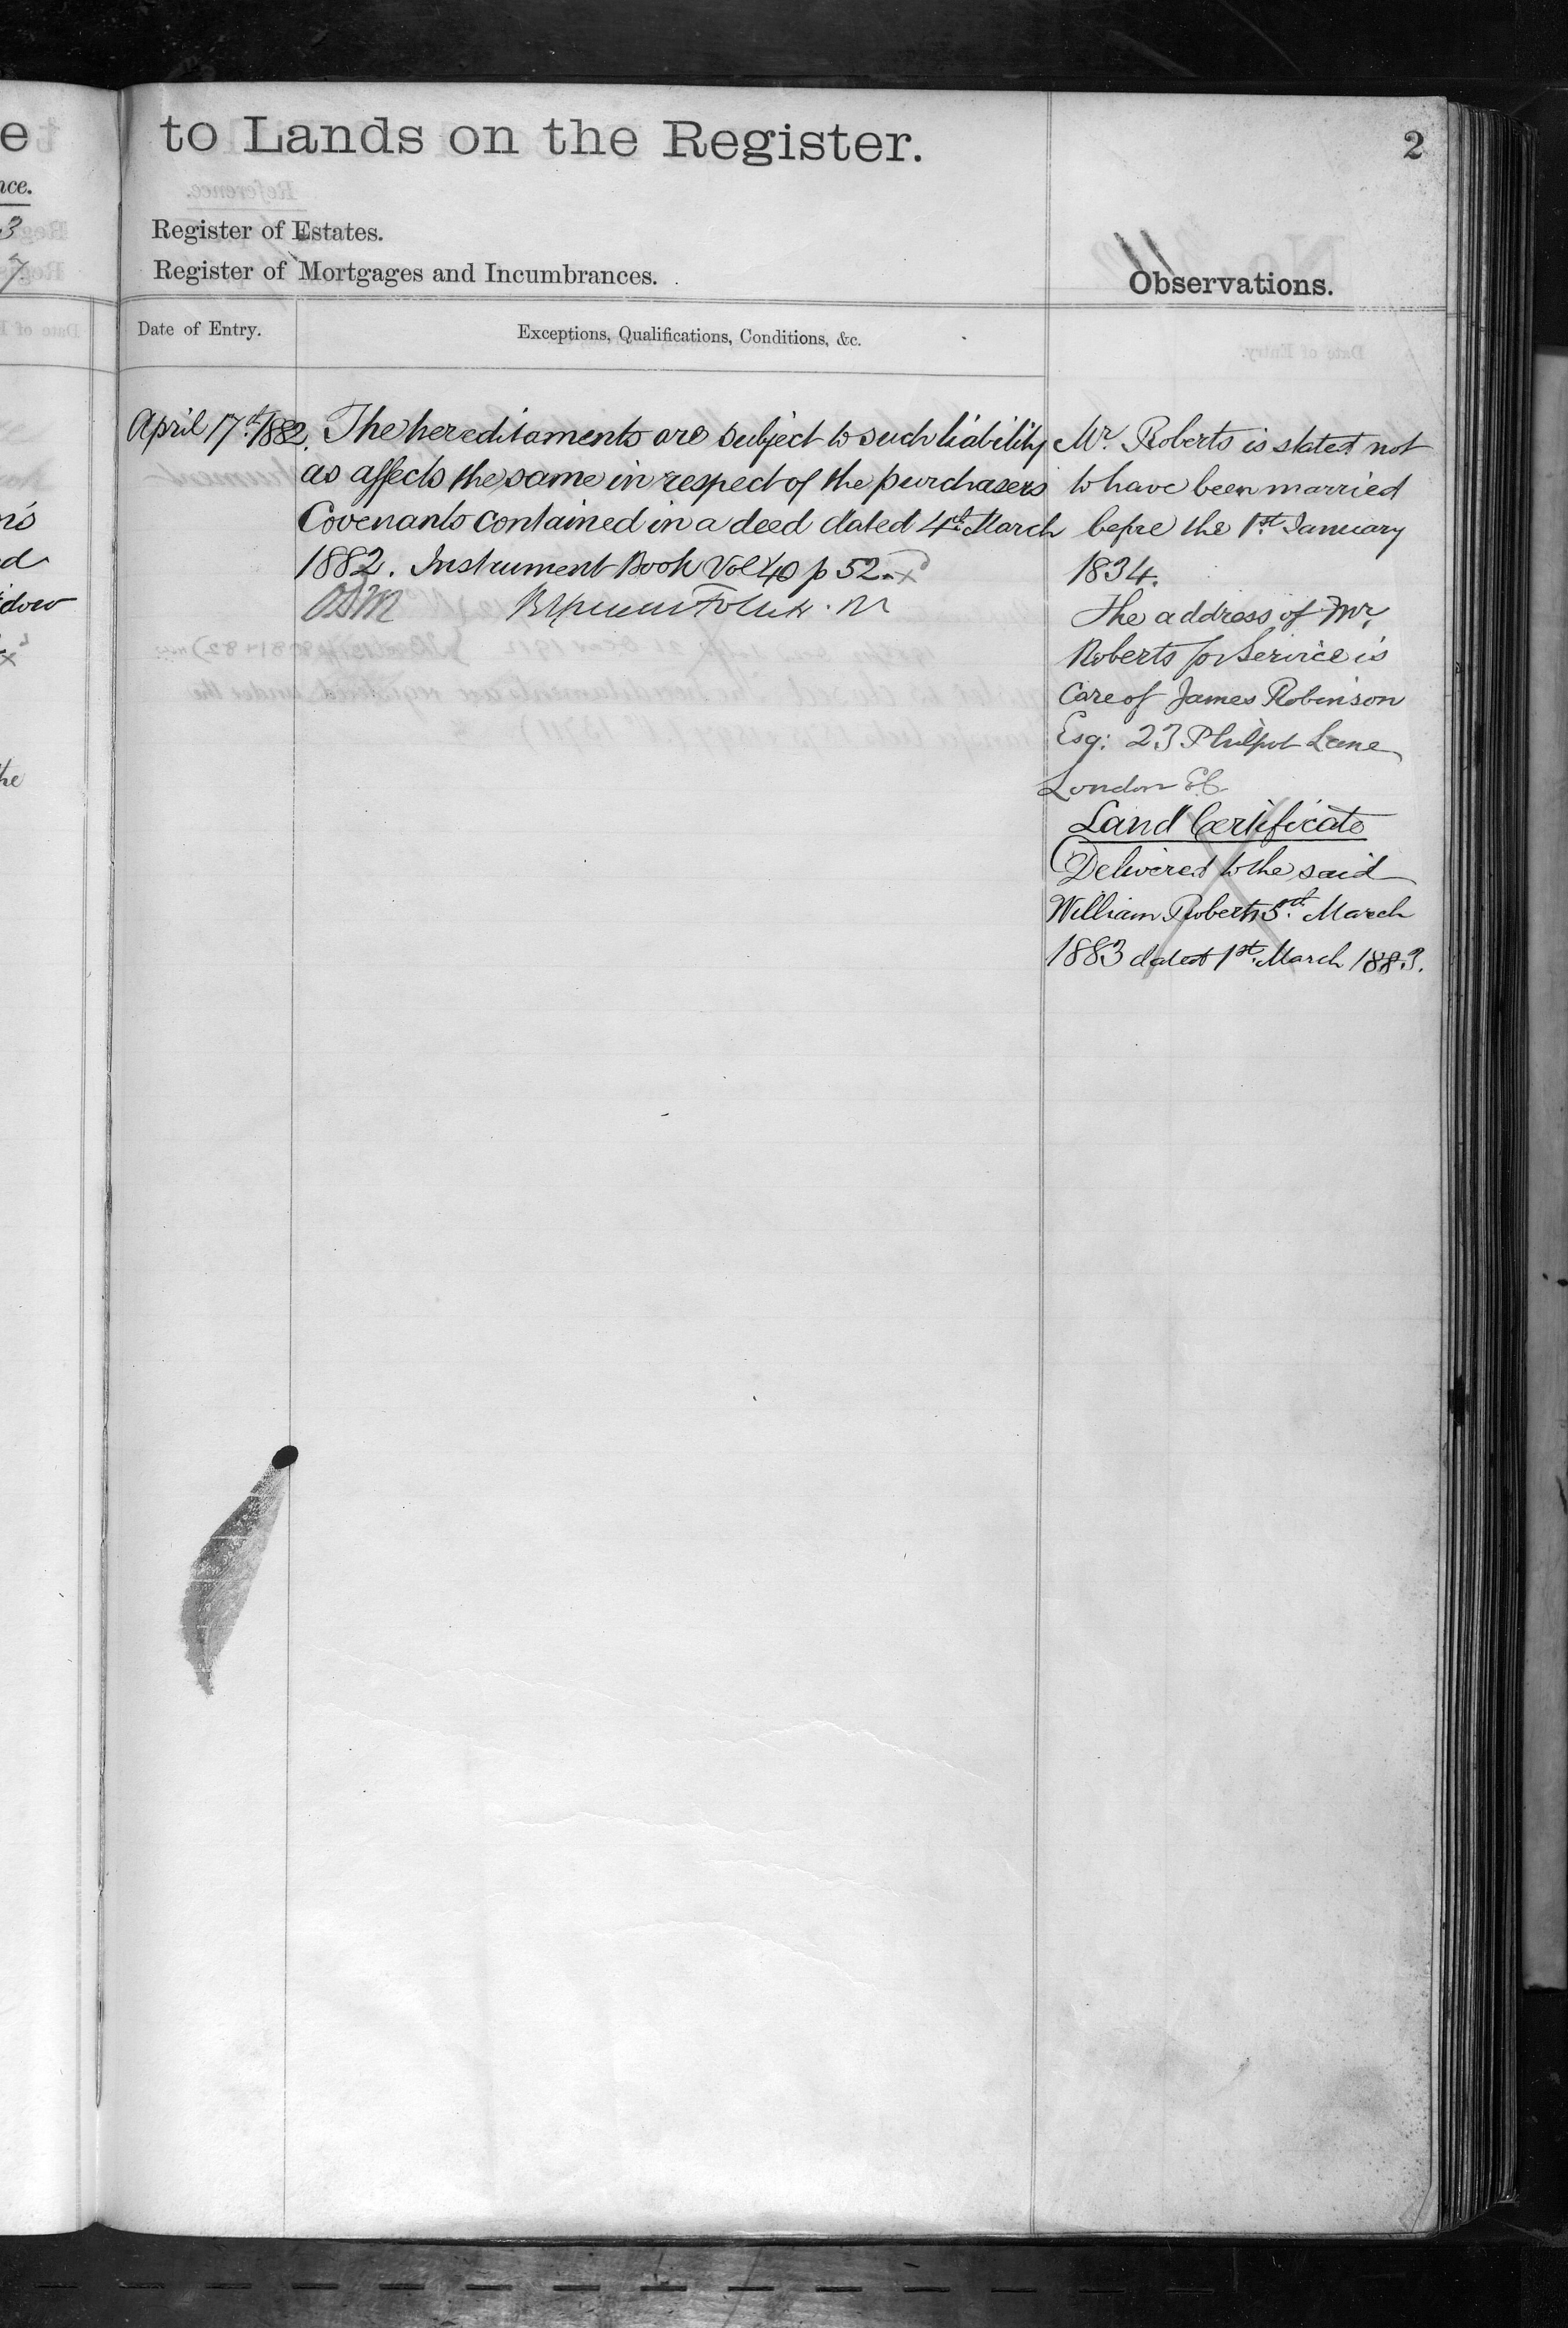 e
nce.
3
7
n's
d
dow
x
he
to Lands on the Register.
2
Register of Estates.
Register of Mortgages and Incumbrances.
Observations.
Date of Entry.
Exceptions, Qualifications, Conditions, &c.
April 17th 1882.
The hereditaments are subject to such liability
as affects the same in respect of the purchasers
Covenants contained in a deed dated 4th March
1882. Instrument Book Vol 40 p 52. x
Mr. Roberts is stated not
to have been married
befre the 1st January
1834.
The address of Mr.
Roberts for Service is
Care of James Robinson
Esq: 23 Philpot Lane
London E.C.
Land Certificate
Delivered to the said
William Roberts March
1883 dated 1st March 1883.